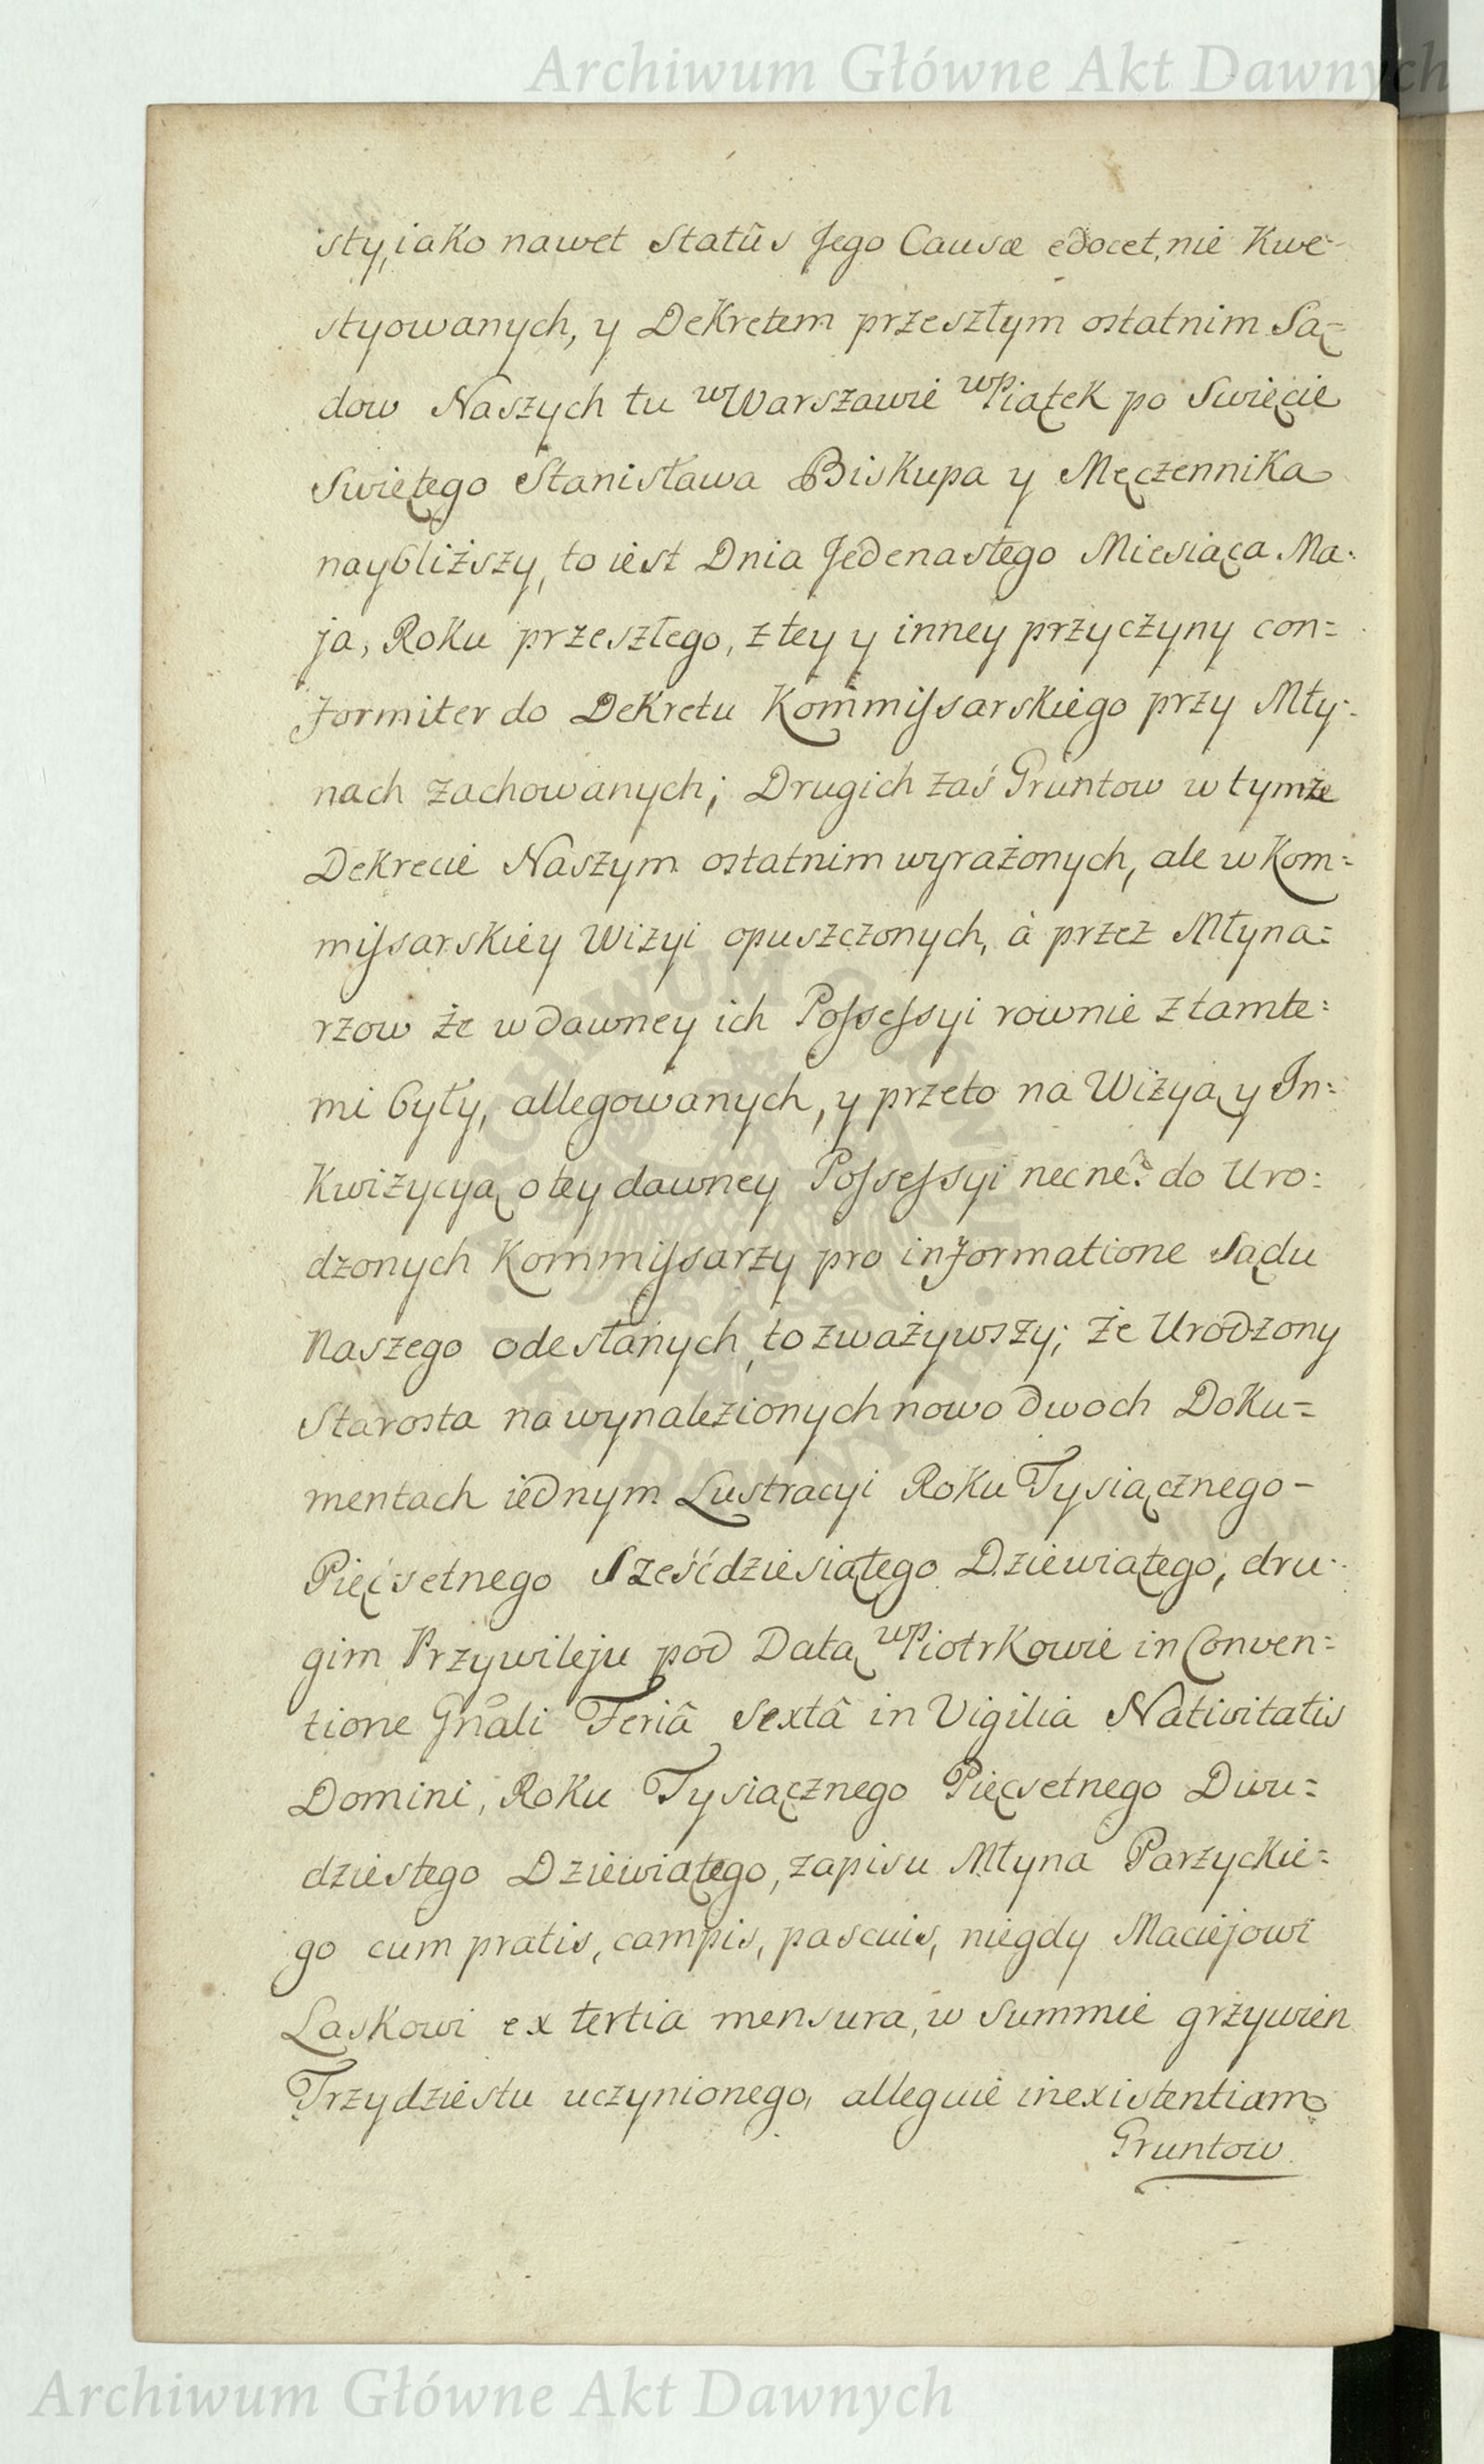 Archiwum Główne Akt Dawnych
sty, iako nawet Statûs Jego Causæ edocet, nie Kwe-
styowanych, y DeKretem przeszłym ostatnim Są=
dow Naszych tu w Warszawie w Piątek po Swięcie
Swiętego Stanisława Biskupa y MęczenniKa
naybliższy, to iest Dnia Jedenastego Miesiąca Ma-
ja, RoKu przeszłego, z tey y inney przyczyny con=
formiter do DeKretu Kommissarskiego przy Mły-
nach zachowanych; Drugich zaś Gruntow w tymże
DeKrecie Naszym ostatnim wyrażonych, ale w Kom=
missarskiey Wizyi opuszczonych, à przez Młyna=
rzow że w dawney ich Possessyi rownie z tamte=
mi były, allegowanych, y przeto na Wizyą y In=
Kwizycyą o tey dawney Possessyi nec ne? do Uro=
dzonych Kommissarzy pro informatione Sądu
Naszego odesłanych, to zważywszy; że Urodzony
Starosta na wynalezionych nowo dwoch DoKu=
mentach iednym Lustracyi RoKu Tysiącznego-
Pięćsetnego Sześćdziesiątego Dziewiątego, dru-
gim Przywileju pod Datą w PiotrKowie in Conven=
tione Gnãli Feriâ Sextâ in Vigilia Nativitatis
Domini, RoKu Tysiącznego Pięcsetnego Dwu=
dziestego Dziewiątego, zapisu Młyna Parzyckie=
go cum pratis, campis, pascuis, niegdy Maciejowi
LasKowi ex tertia mensura, w Summie grzywien
Trzydziestu uczynionego, alleguie inexistentiam
Gruntow.
Archiwum Główne Akt Dawnych